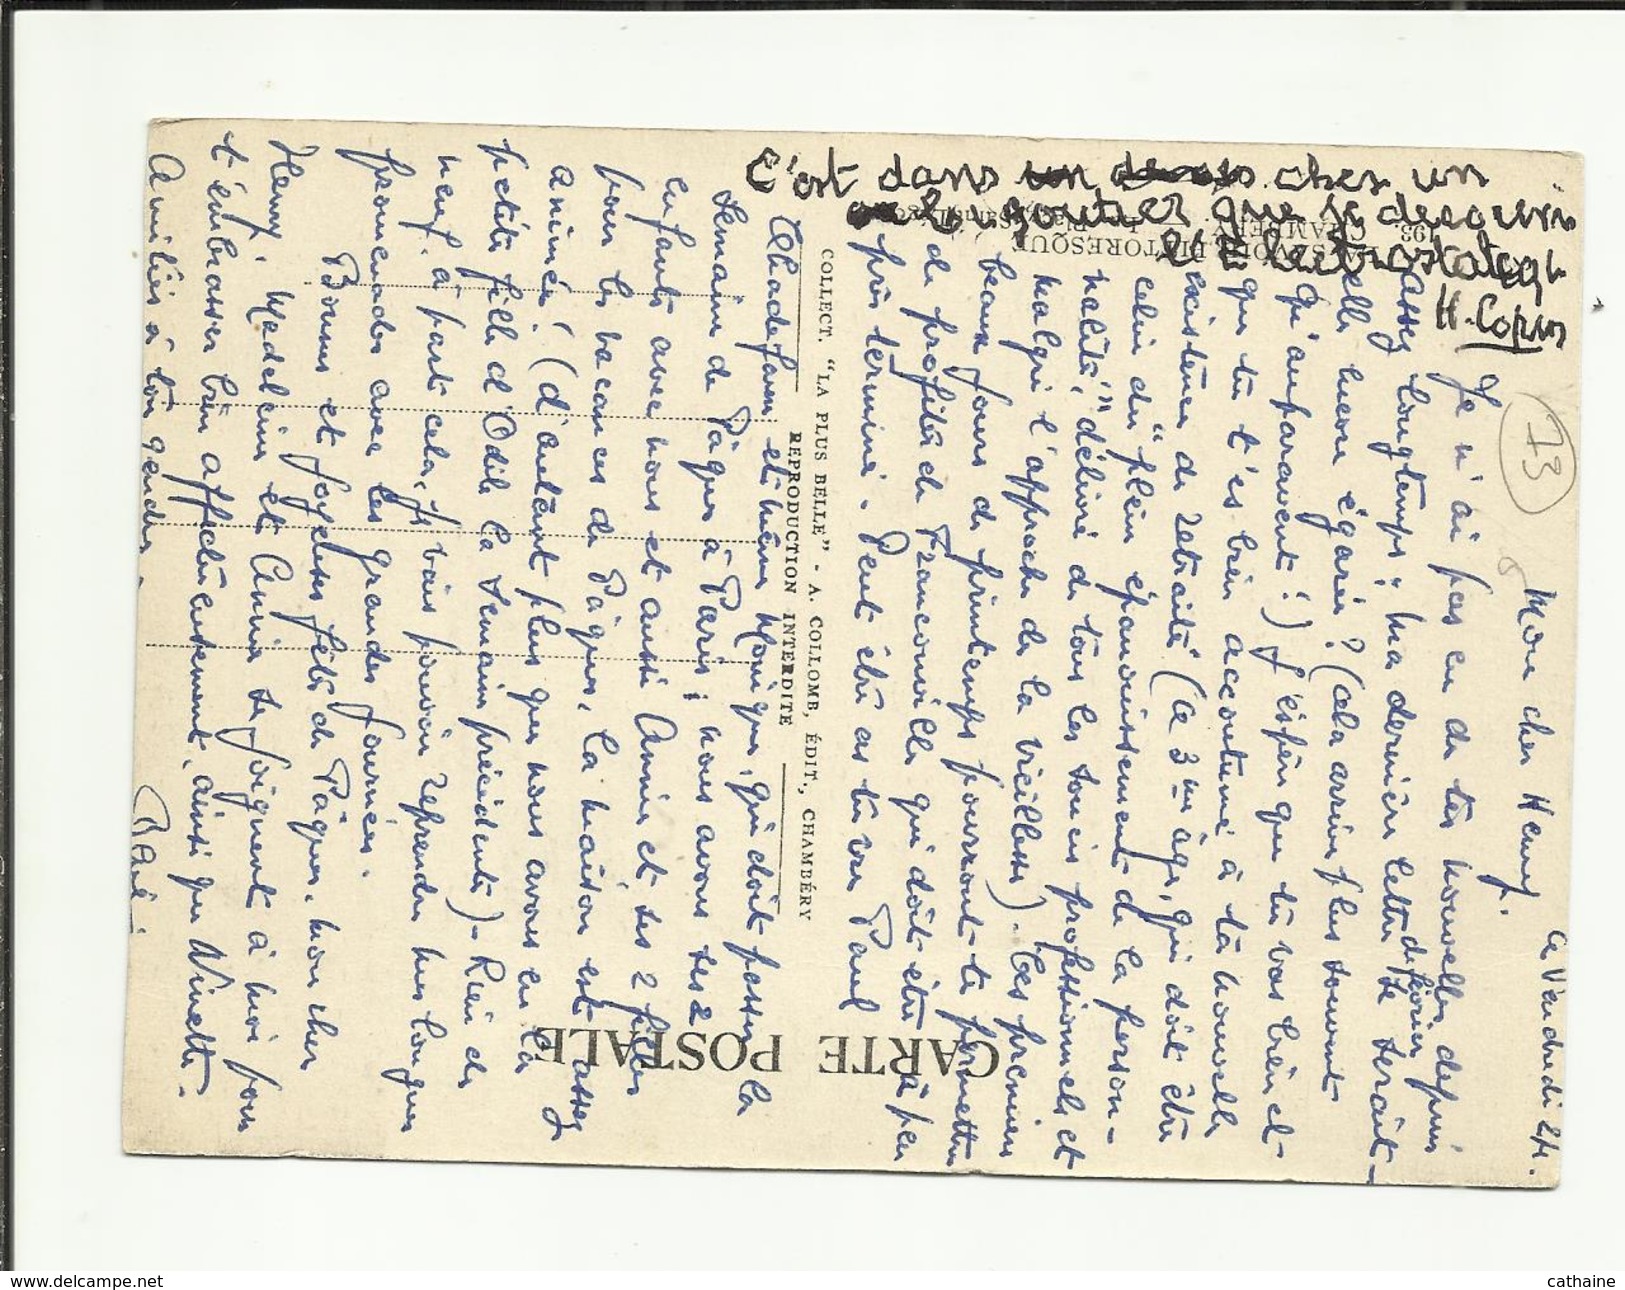 Ce Vendredi 24.
Mon cher Henry.
Je n'ai pas eu de tes nouvelles depuis
assez longtemps ; ma dernière lettre de février se serait-
elle encore égarée ? (cela arrive plus souvent
qu'auparavant !) J'espère que tu vas bien et
que tu t'es bien accoutumé à ta nouvelle
existence de retraité (ce 3me âge, qui doit être
celui du "plein épanouissement de la person-
nalité", délivré de tous les soucis professionnels et
malgré l'approche de la vieillesse). Ces premiers
beaux jours de printemps pourront te permettre
de profiter de Franconville qui doit être à peu
près terminé. Peut être as tu vu Paul
Chadefaux et même Monique, qui doit passer la
semaine de Pâques à Paris ; nous avons ses 2
enfants avec nous et aussi Annie et ses 2 filles
pour les vacances de Pâques, la maison est assez
animée ! (d'autant plus que nous avons eu la
petite fille d'Odile la semaine précédente) - Rien de
neuf à part cela, je vais pouvoir reprendre mes longues
promenades avec les grandes journées.
Bonnes et joyeuses fêtes de Pâques, mon cher
Henry, Madeleine et Annie se joignent à moi pour
t'embrasser bien affectueusement, ainsi que Ninette.
Amitiés à ton gendre.
73
C'est dans un chez un
goutier que je decouvris
l'Electrostategh
H. Copin
LA SAVOIE PITTORESQUE
193.
CHAMBERY
CARTE POSTALE
COLLECT. "LA PLUS BELLE" - A. COLLOMB, ÉDIT., CHAMBÉRY
REPRODUCTION INTERDITE
cathaine